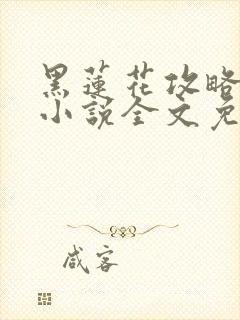 黑蓮花攻略
小說全文免
咸客